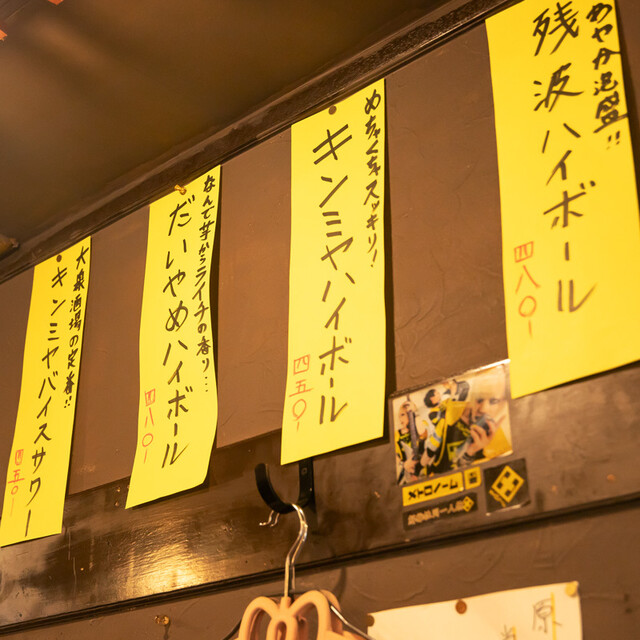 めやか泡盛!!
残波ハイボール
四八〇-
めちゃくちゃスッキリ!
キンミヤハイボール
四五〇-
なんて芋からライチの香り…
だいやめハイボール
四八〇-
大衆酒場の定番!!
キンミヤバイスサワー
四五〇-
原